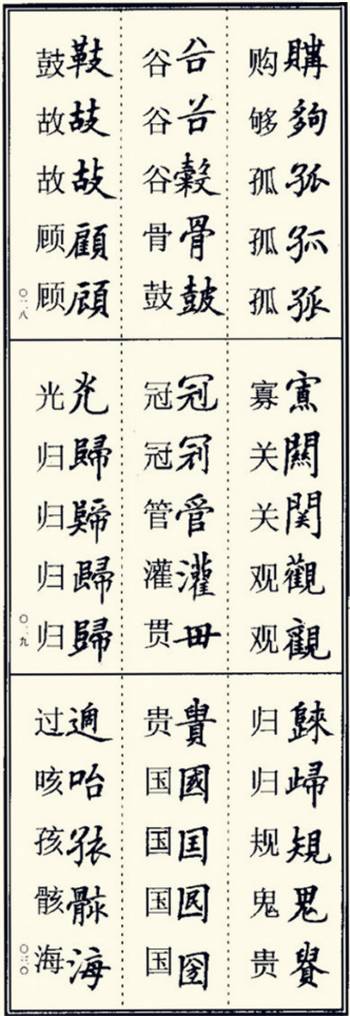 购購
够夠
孤孤
孤孤
孤孤
谷谷
谷谷
谷穀
骨骨
鼓皷
鼓
故故
故故
顾顧
顾頋
〇二八
寡
关關
关関
观觀
观觀
冠冠
冠
管管
灌灌
贯毌
光光
归歸
归
归歸
归歸
〇二九
归
归
规規
鬼鬼
贵
贵貴
国國
国囯
国
国
过過
咳
孩
骸骸
海海
〇三〇